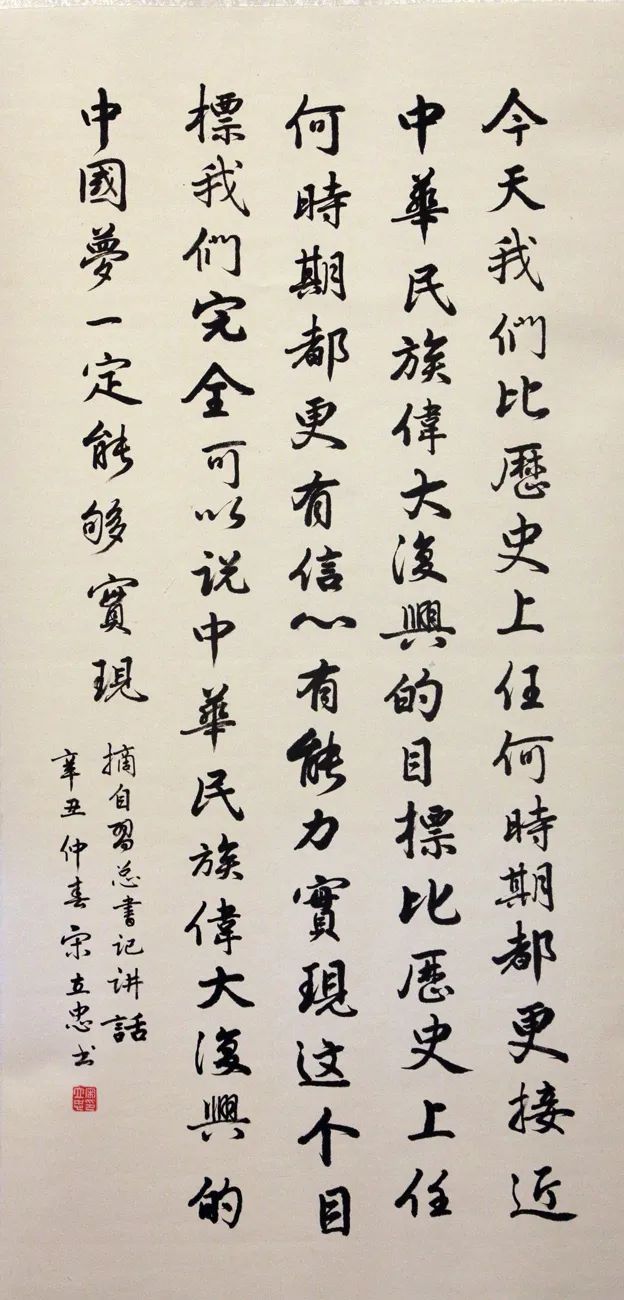 今天我們比歷史上任何時期都更接近
中華民族偉大復興的目標比歷史上任
何時期都更有信心有能力實現这个目
標我們完全可以说中華民族偉大復興的
中國夢一定能够實現
摘自習总書记讲話
辛丑仲春宋立忠书